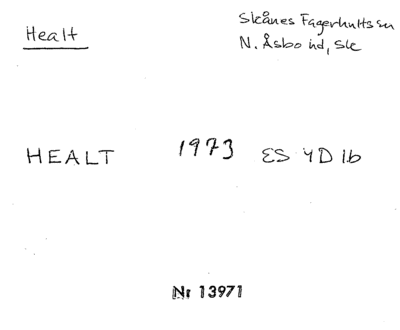 Healt
Skånes Fagerhults sn
N. Åsbo hd, Sk
HEALT 1973 ES 4D 1b
Nr 13971